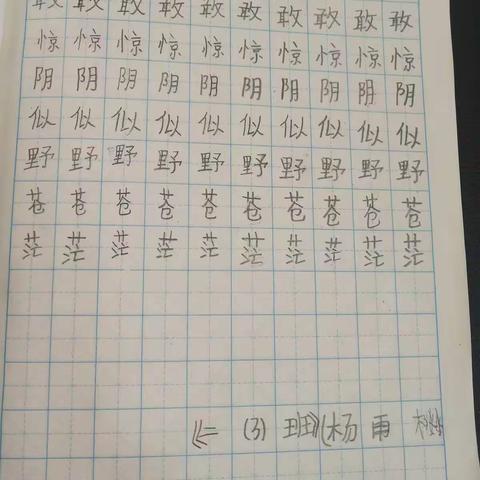 敢敢敢敢敢敢敢敢敢敢
惊惊惊惊惊惊惊惊惊惊
阴阴阴阴阴阴阴阴阴阴
似似似似似似似似似似
野野野野野野野野野野
苍苍苍苍苍苍苍苍苍苍
茫茫茫茫茫茫茫茫茫茫
《二 (3) 班》(杨 雨